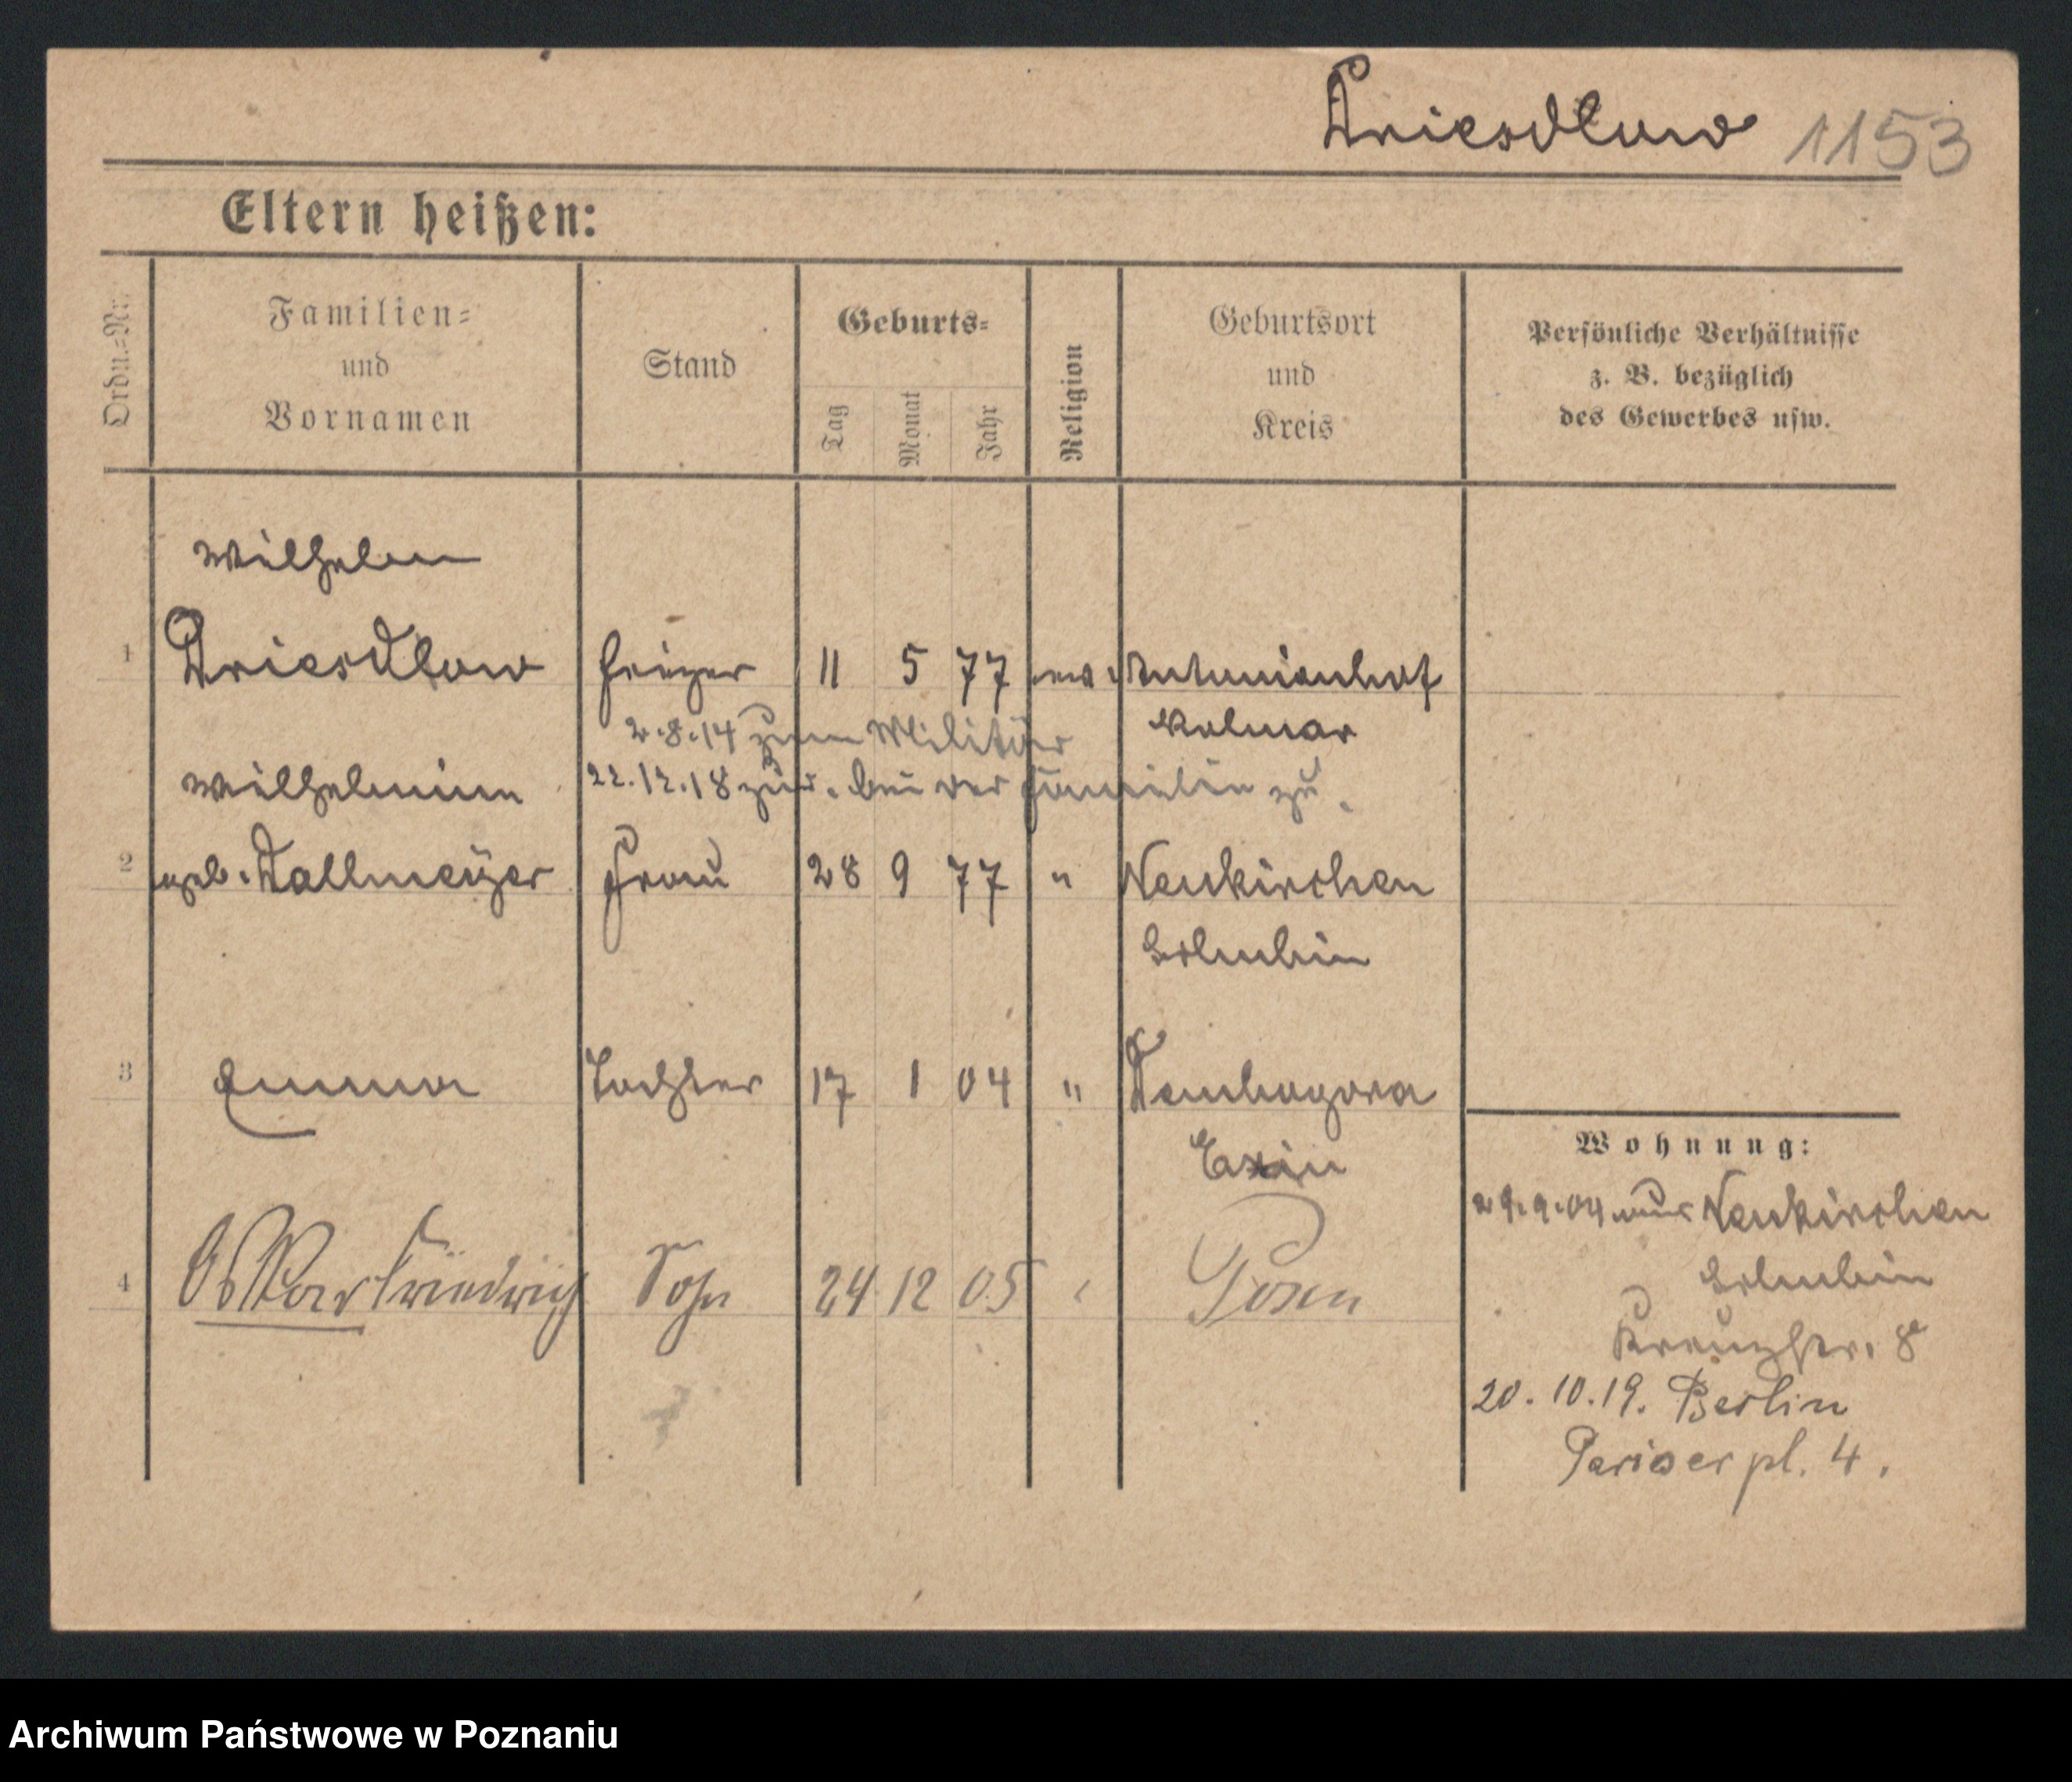 Driesdlow 1153
Eltern heißen:
Ordn.-Nr.
Familien-
und
Vornamen
Stand
Geburts-
Tag
Monat
Jahr
Religion
Geburtsort
und
Kreis
Persönliche Verhältnisse
z. B. bezüglich
des Gewerbes usw.
Wilhelm
1 Drieschlow Heizer 11 5 77 ev. Antonienhof
2.8.14 zum Militär Kolmar
Wilhelmine 22.12.18 zur. bei der Familie zu.
2 geb. Dallmeÿer Frau 28 9 77 " Neukirchen
Schubin
3 Emma Tochter 17 1 04 " Dembogora
Exin
Wohnung:
29.9.04 aus Neukirchen
Schubin
4 Oskar Friedrich Sohn 24 12 05 " Posen
Kreuzstr. 8
20.10.19. Berlin
Pariser pl. 4.
Archiwum Państwowe w Poznaniu